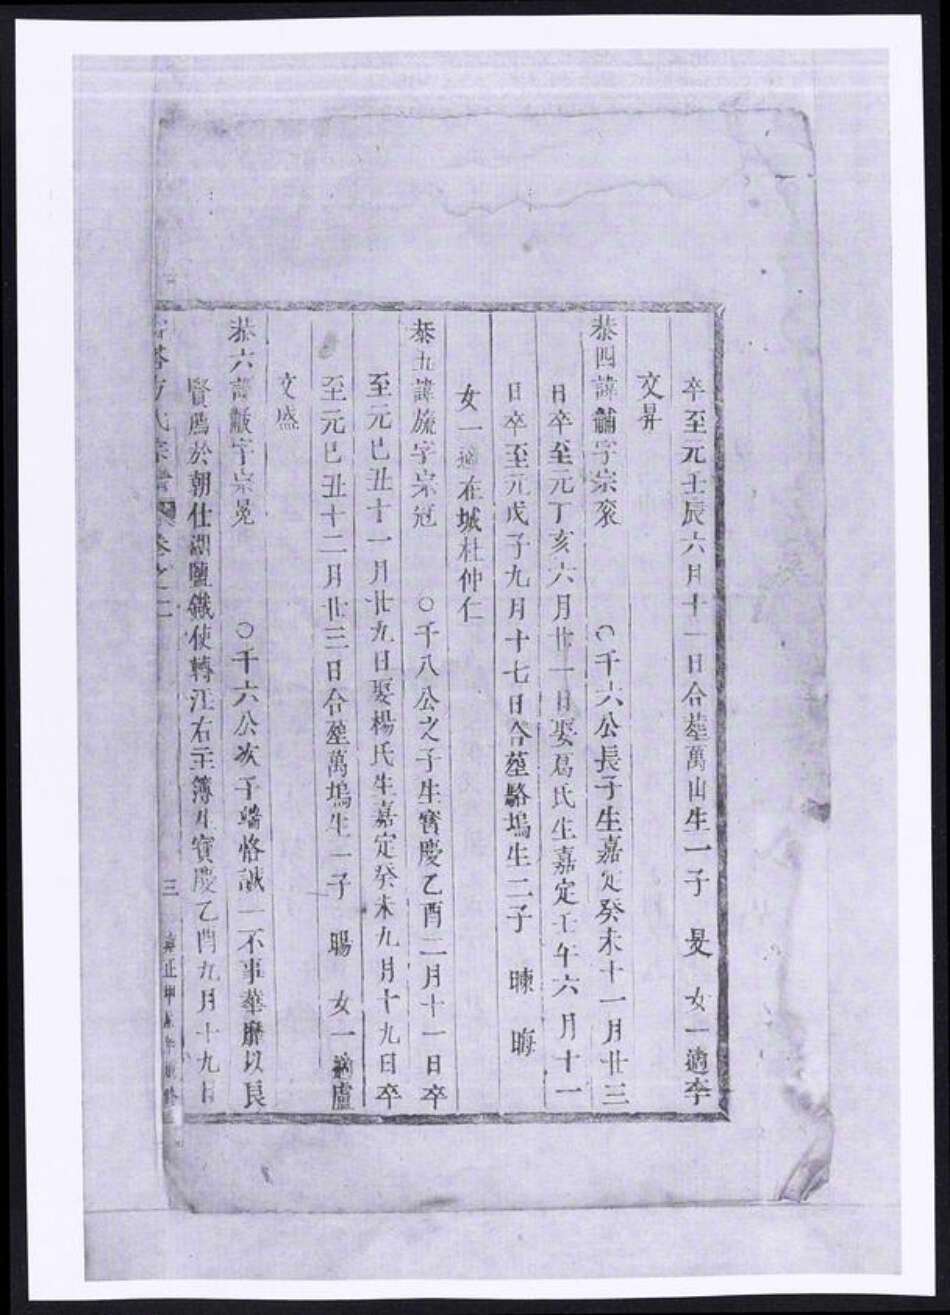 卒至元壬辰六月十一日合葬萬山生一子 旻 女一適李
文昇
恭四諱黼字宗袞 ○千六公長子生嘉定癸未十一月廿三
日卒至元丁亥六月廿一日娶葛氏生嘉定壬午六月十一
日卒至元戊子九月十七日合葬駱塢生二子 暕 晦
女一適在城杜仲仁
恭五諱旒字宗冠 ○千八公之子生寶慶乙酉二月十一日卒
至元己丑十一月廿九日娶楊氏生嘉定癸未九月十九日卒
至元己丑十二月廿三日合葬萬塢生一子 暘 女一適盧
文盛
恭六諱黻字宗冕 ○千六公次子端恪誠一不事華靡以良
賢薦於朝仕湖鹽鐵使轉江右主簿生寶慶乙酉九月十九日
方氏宗譜 卷之二 三